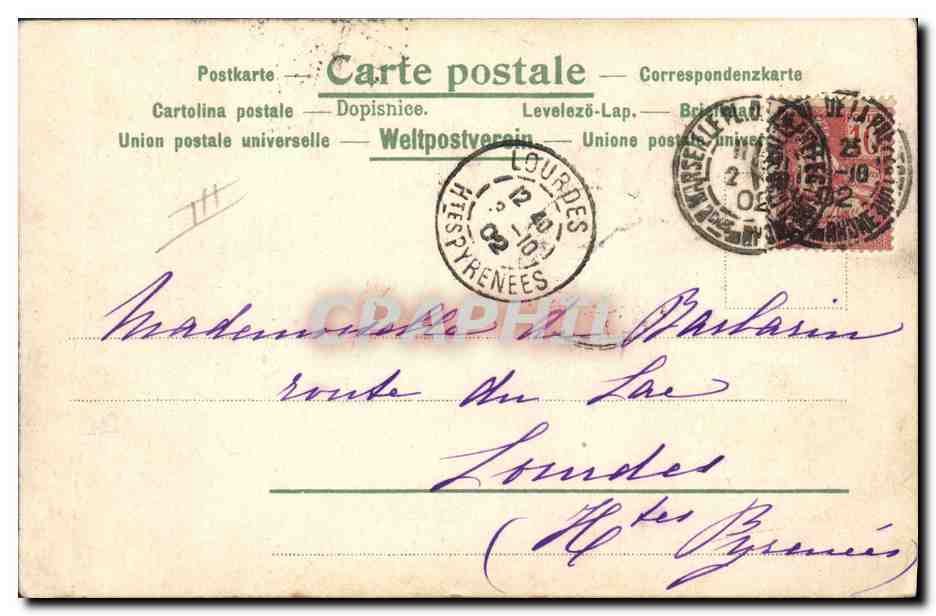 Postkarte — Carte postale — Correspondenzkarte
Cartolina postale — Dopisnice. Levelezö-Lap. —
Union postale universelle — Weltpostverein — Unione postale
10
MARSEILLE
02
25
-10
02
LOURDES
12 40
-10
02
HTES PYRENEES
CPAPHIL
Mademoiselle de Barbarin
route du Lac
Lourdes
(Htes Pyrenées